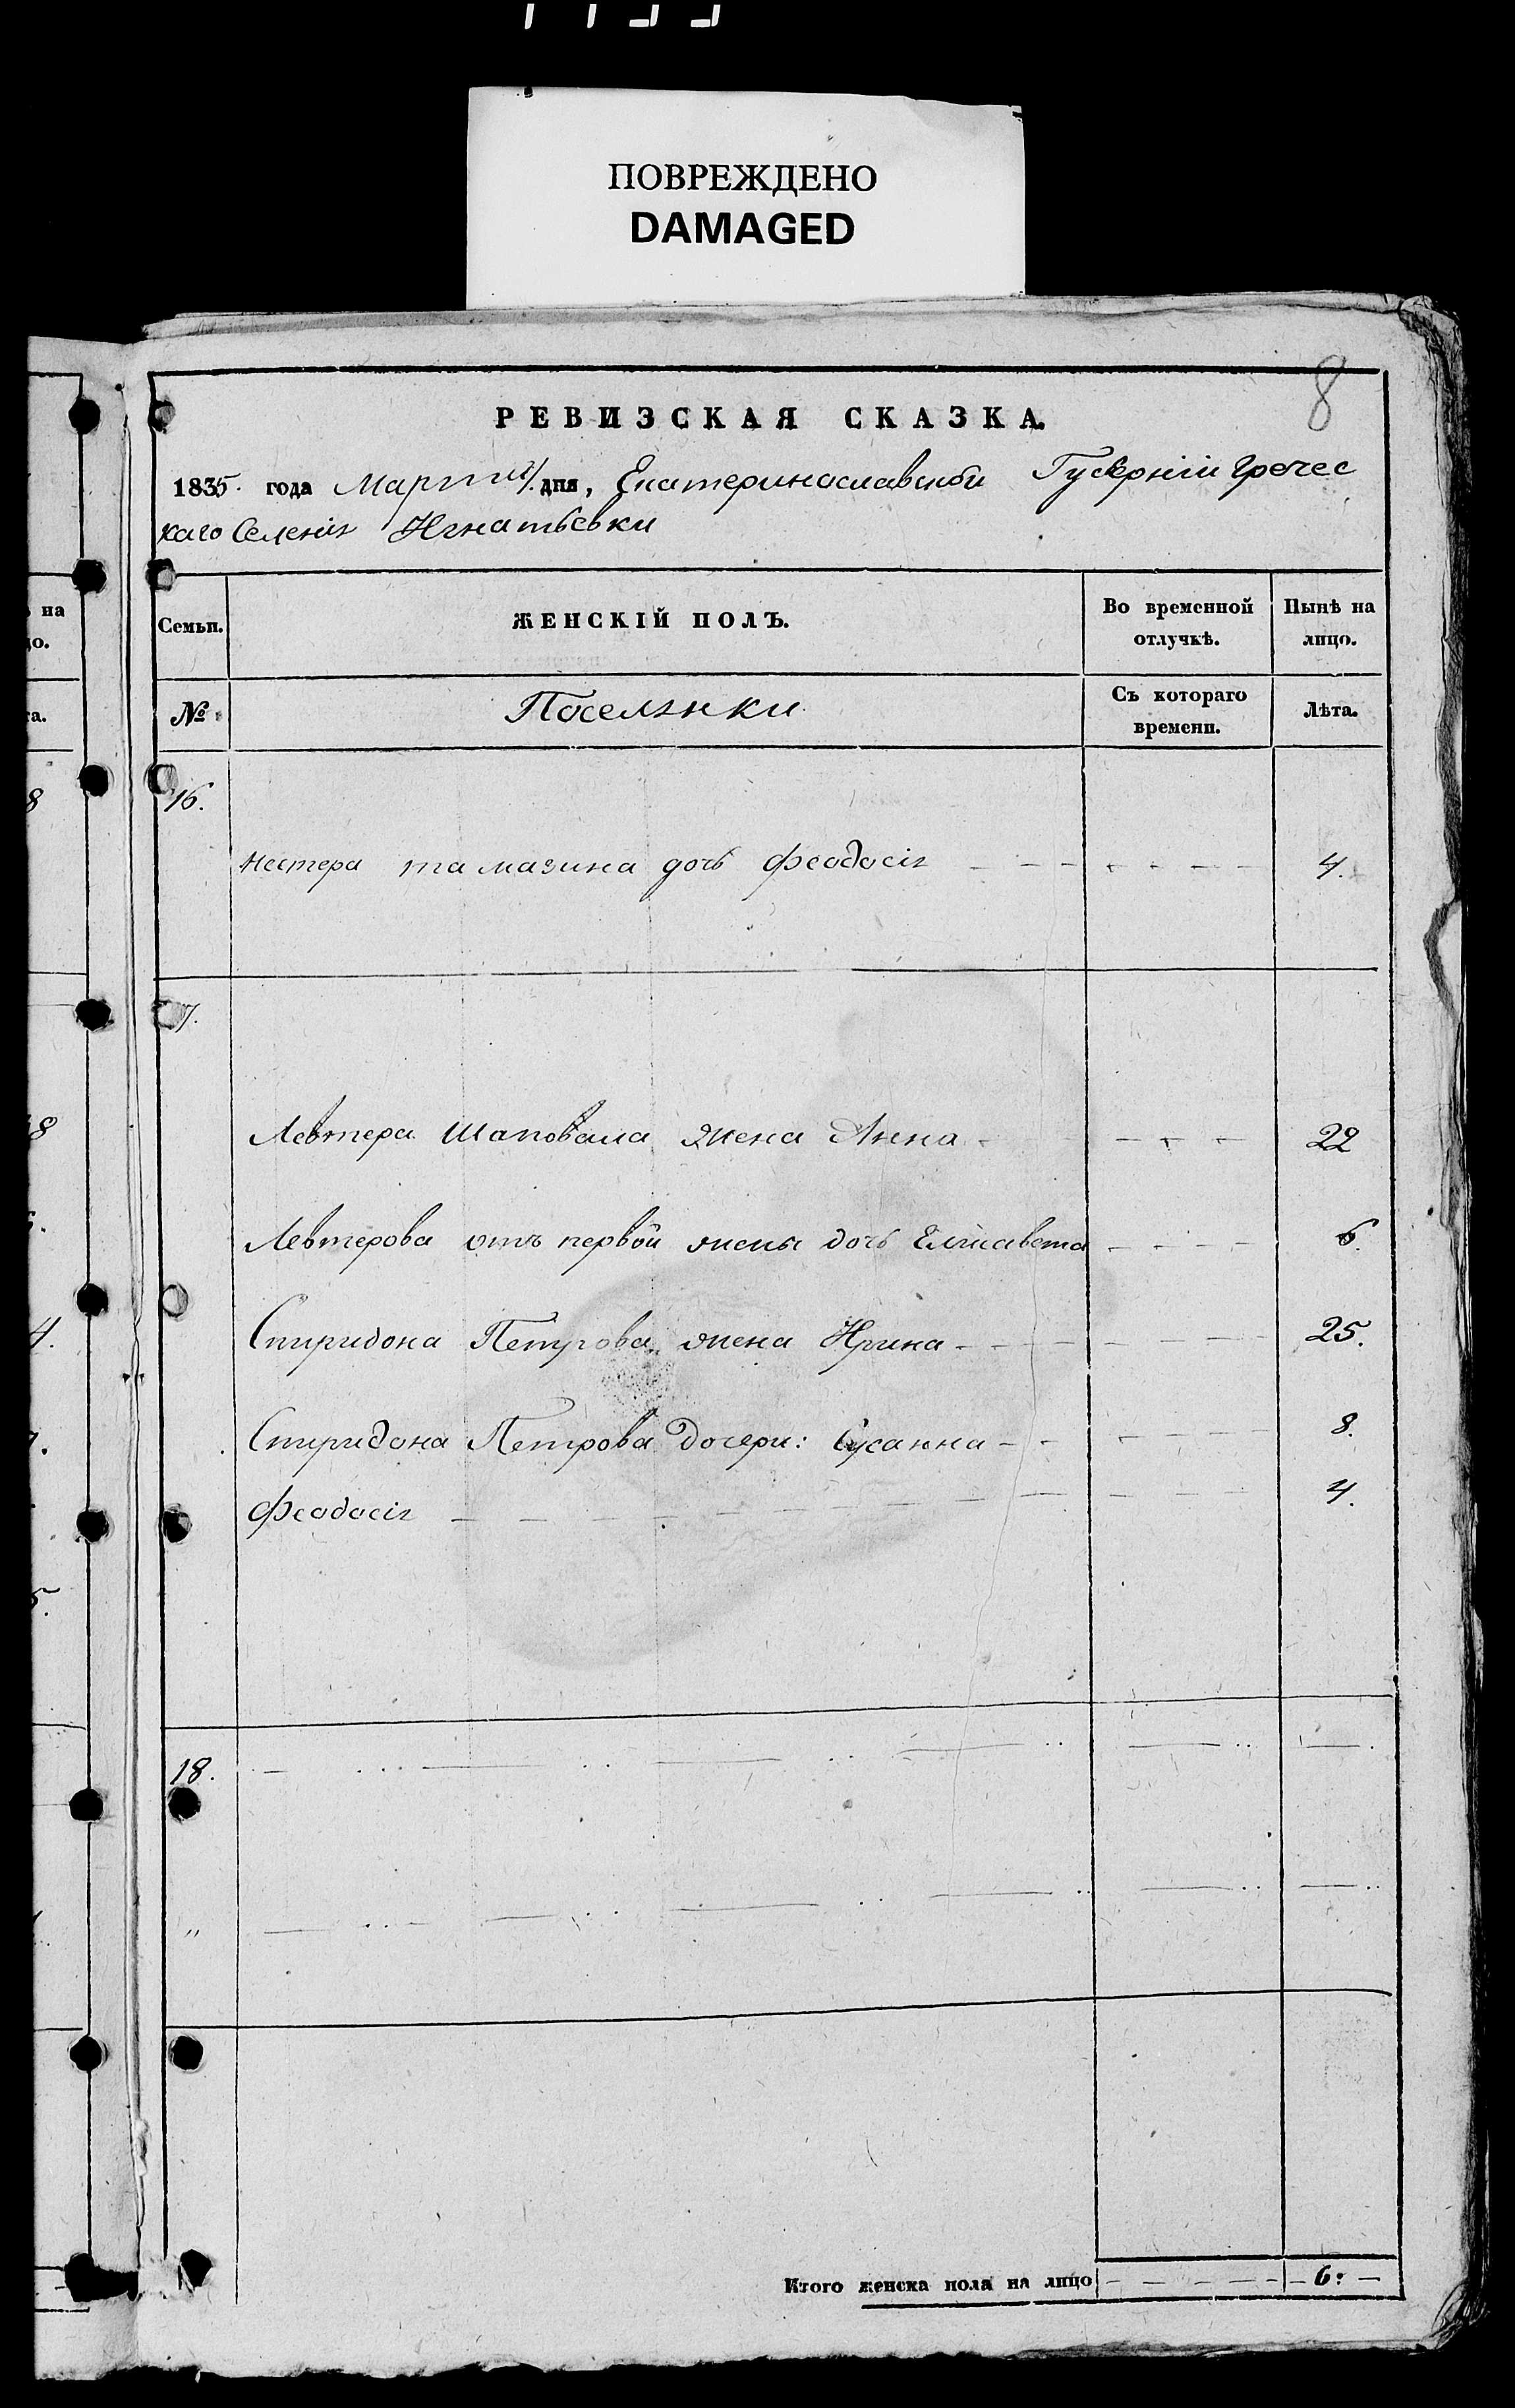 ПОВРЕЖДЕНО
DAMAGED
8
РЕВИЗСКАЯ СКАЗКА.
1835. года Марта дня, Екатеринославской Губерніи Гречес
каго Селенія Игнатьевки
Семьи. ЖЕНСКІЙ ПОЛЪ. Во временной отлучкѣ. Нынѣ на лицо.
№ Поселянки Съ котораго времени. Лѣта.
16.
Нестера Тамазина дочь Феодосія 4.
7.
Левтера Шаповала жена Анна 22
Левтерова отъ первой жены дочь Елисавета 6.
Спиридона Петрова жена Ирина 25.
Спиридона Петрова Дочери: Сусанна 8.
Феодосія 4.
18.
"
Итого женска пола на лицо 6: